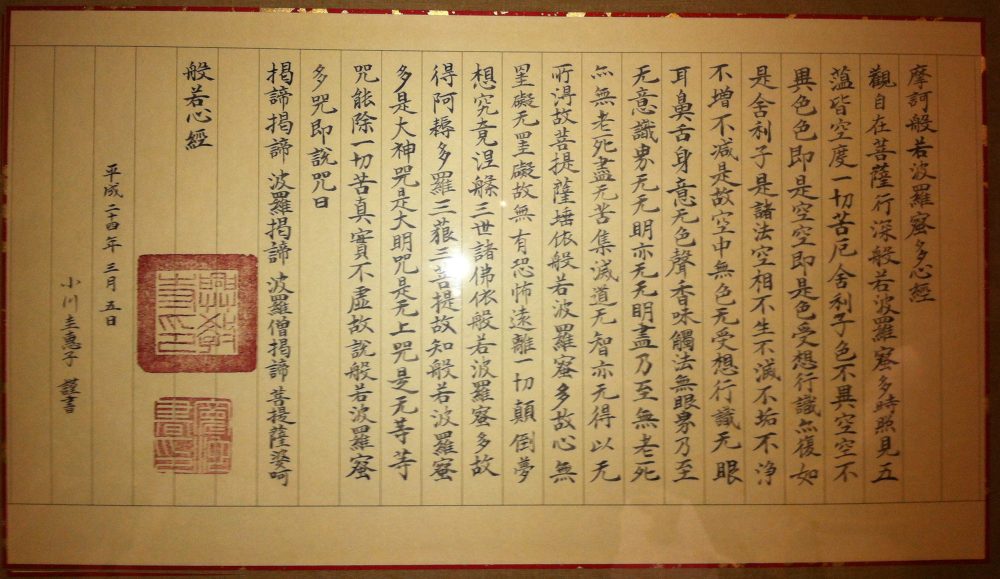 摩訶般若波羅蜜多心經
觀自在菩薩行深般若波羅蜜多時照見五
蘊皆空度一切苦厄舍利子色不異空空不
異色色即是空空即是色受想行識亦復如
是舍利子是諸法空相不生不滅不垢不淨
不增不減是故空中無色无受想行識无眼
耳鼻舌身意无色聲香味觸法無眼界乃至
无意識界无无明亦无无明盡乃至無老死
亦無老死盡无苦集滅道无智亦无得以无
所得故菩提薩埵依般若波羅蜜多故心無
罣礙无罣礙故無有恐怖遠離一切顛倒夢
想究竟涅槃三世諸佛依般若波羅蜜多故
得阿耨多羅三藐三菩提故知般若波羅蜜
多是大神咒是大明咒是无上咒是无等等
咒能除一切苦真實不虛故說般若波羅蜜
多咒即說咒曰
揭諦揭諦 波羅揭諦 波羅僧揭諦 菩提薩婆呵
般若心經
平成二十四年三月五日
小川圭惠子 謹書